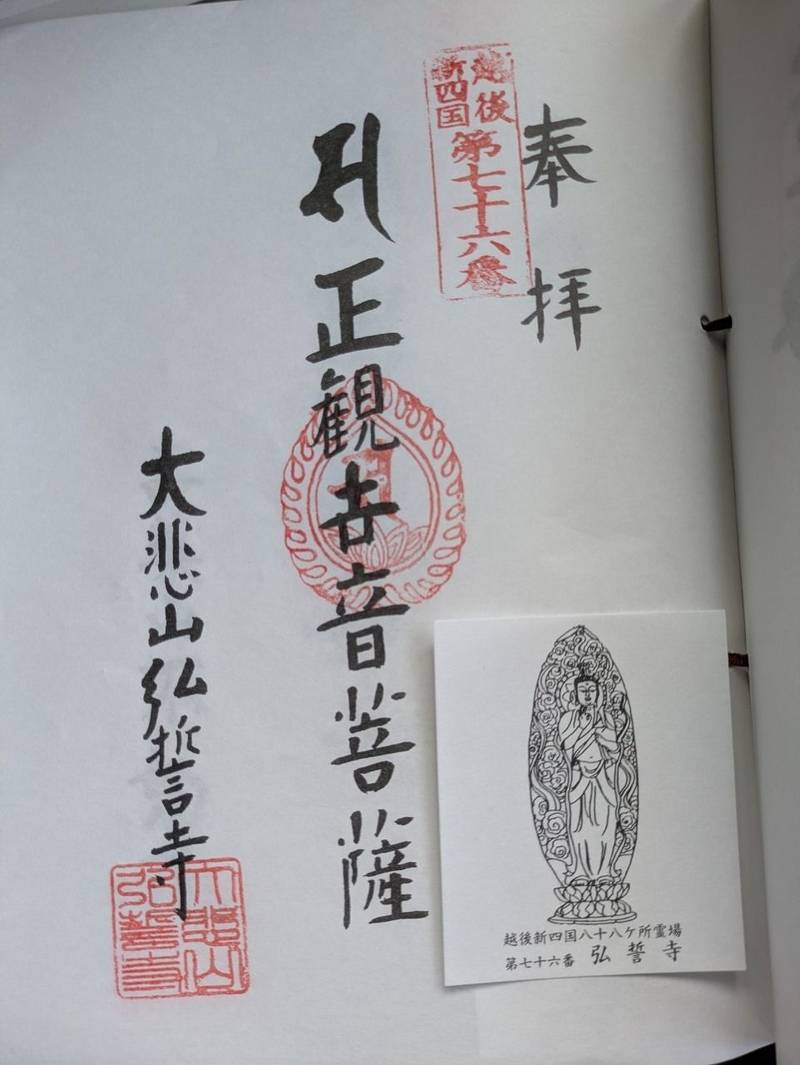 奉拝
越後
新四国
第七十六番
正観世音菩薩
大悲山弘誓寺
大悲山
弘誓寺
越後新四国八十八ケ所霊場
第七十六番 弘誓寺